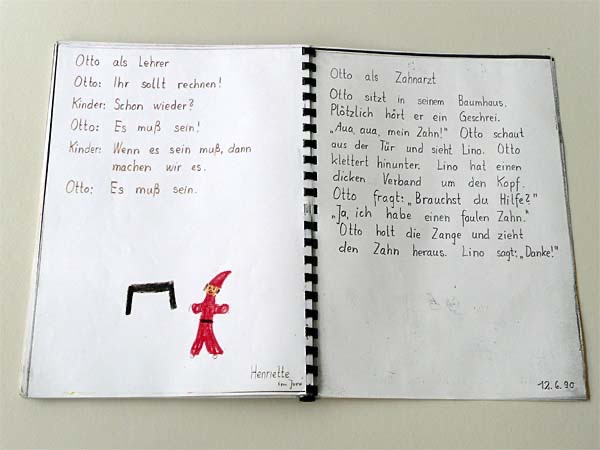 Otto als Lehrer
Otto: Ihr sollt rechnen!
Kinder: Schon wieder?
Otto: Es muß sein!
Kinder: Wenn es sein muß, dann
machen wir es.
Otto: Es muß sein.
Henriette
im Juni
Otto als Zahnarzt
Otto sitzt in seinem Baumhaus.
Plötzlich hört er ein Geschrei.
„Aua, aua, mein Zahn!" Otto schaut
aus der Tür und sieht Lino. Otto
klettert hinunter. Lino hat einen
dicken Verband um den Kopf.
Otto fragt: „Brauchst du Hilfe?"
„Ja, ich habe einen faulen Zahn."
Otto holt die Zange und zieht
den Zahn heraus. Lino sagt: „Danke!"
12.6.90